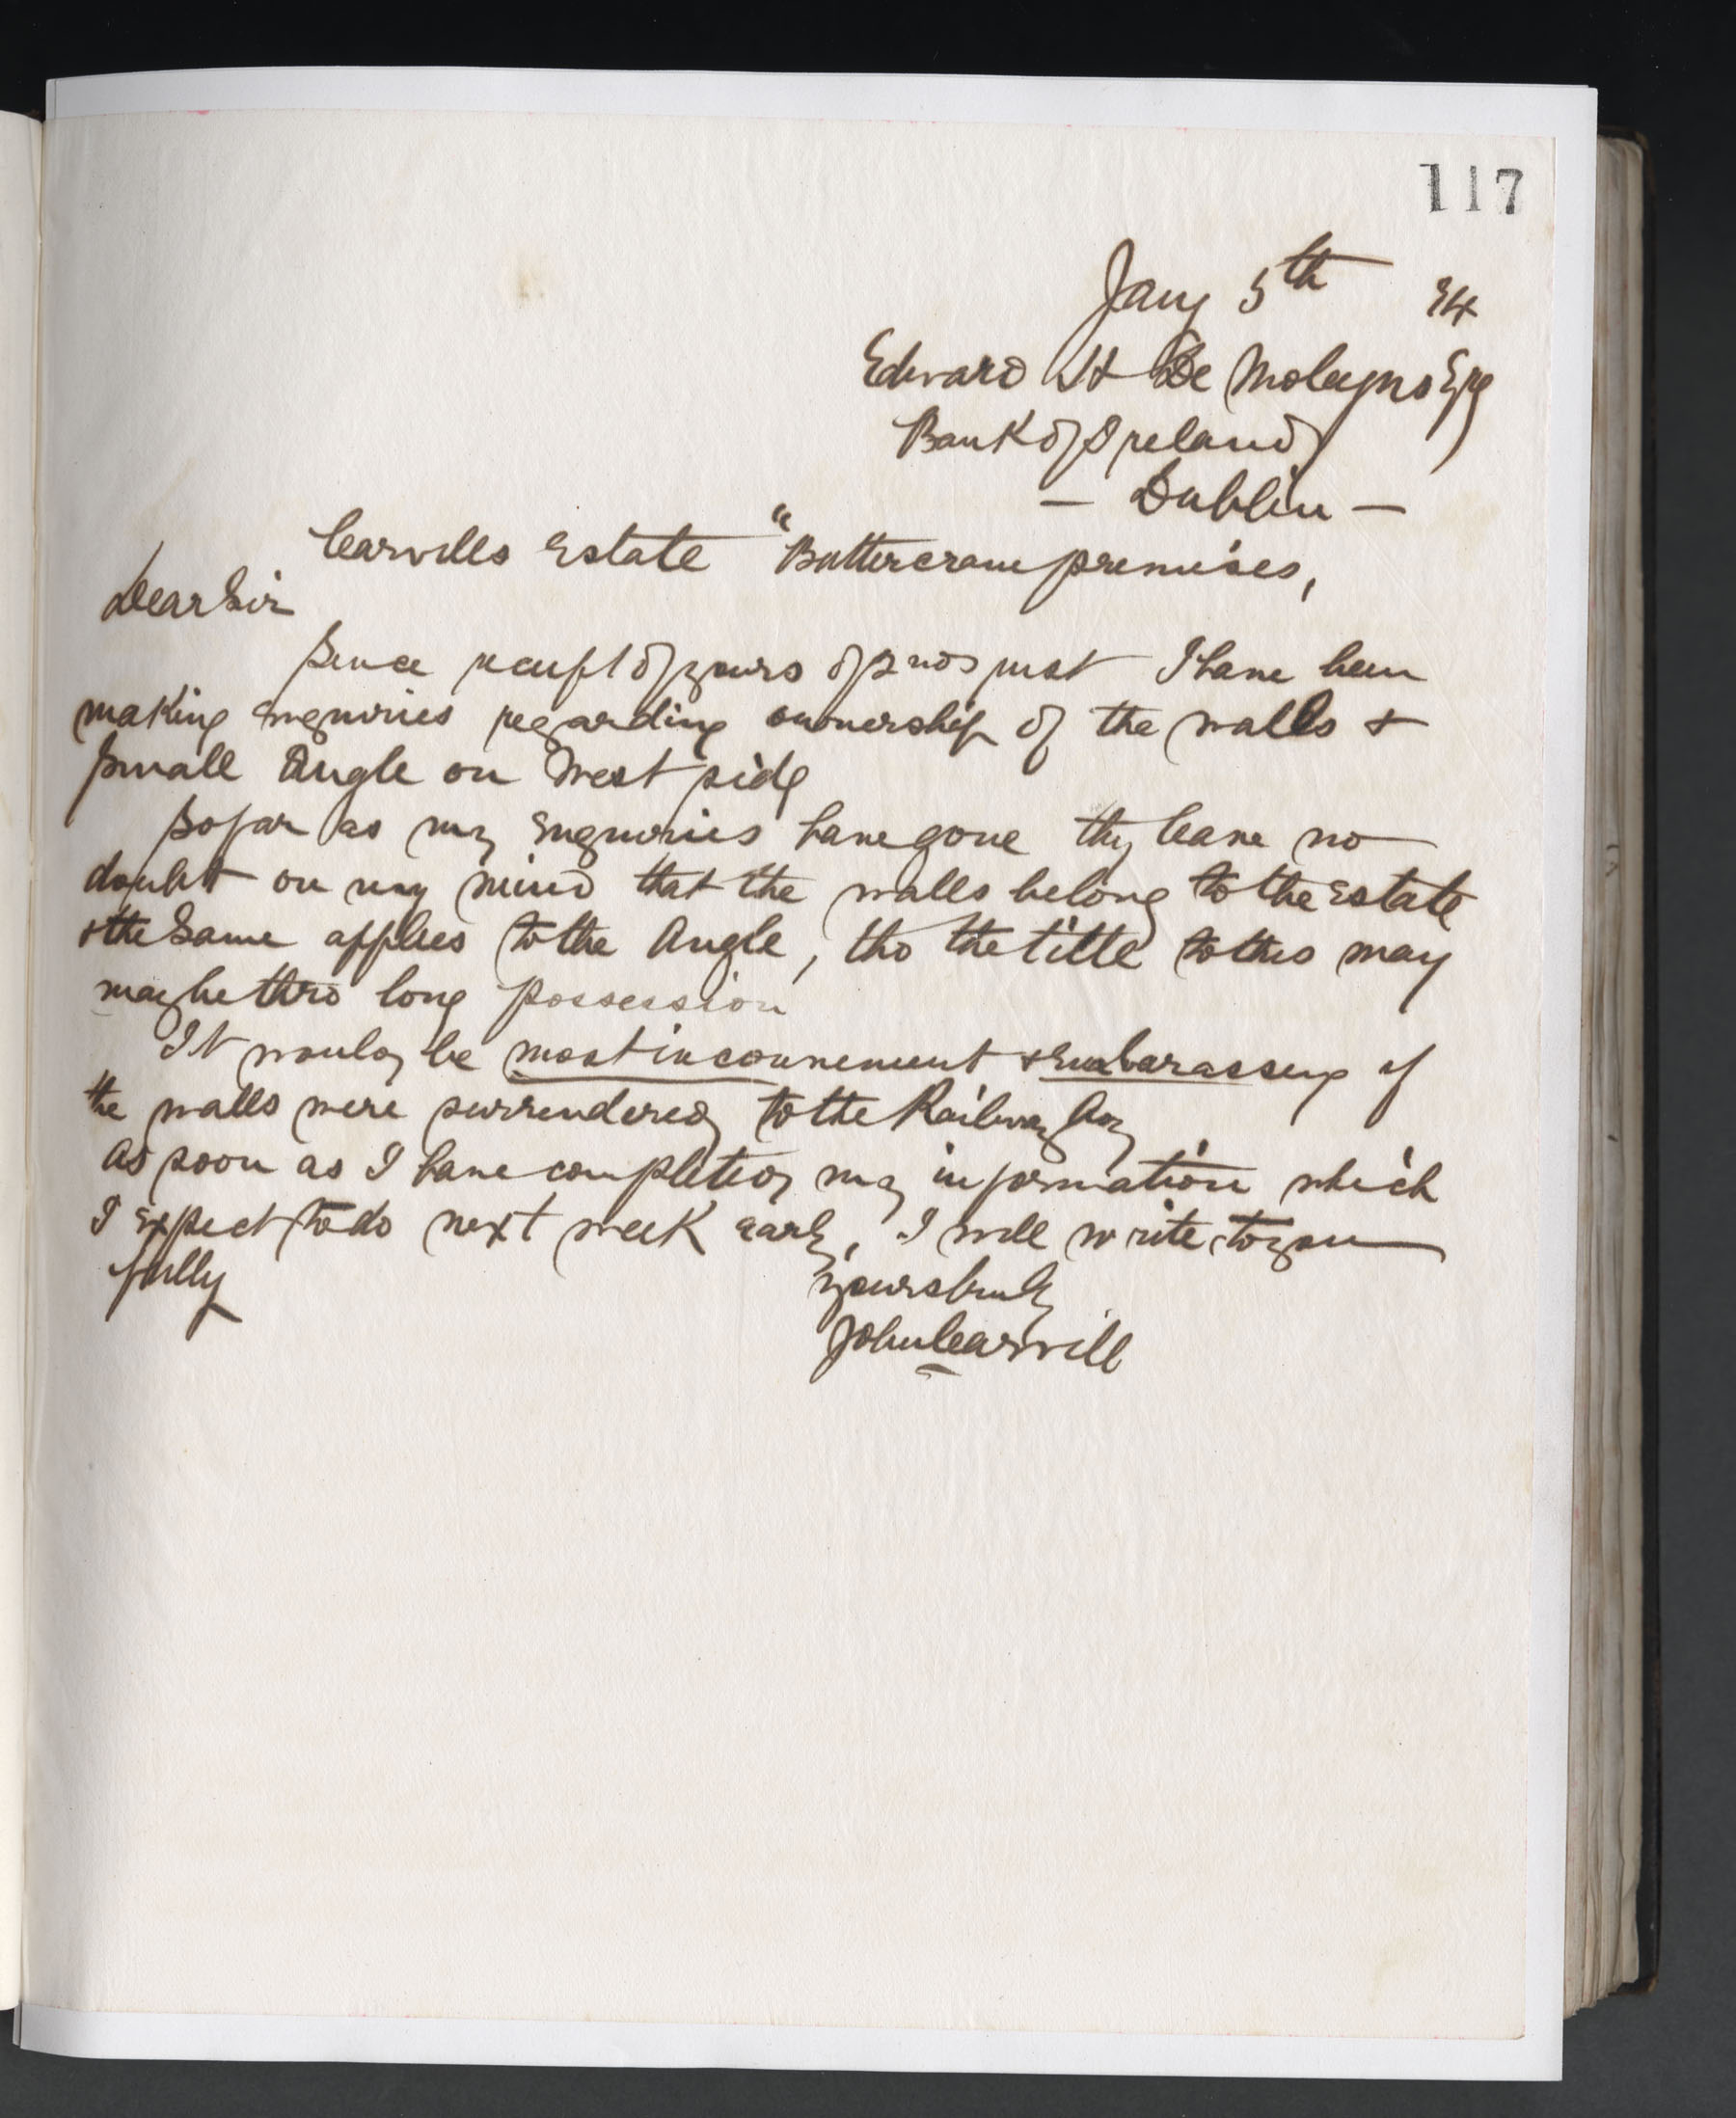 117
Jany 5th 94
Edward St De Moleyns Esq
Bank of Ireland
— Dublin —
Carvills Estate "Buttercrane premises,
Dear Sir
Since receipt of yours of 2nd inst I have been
making Enquiries regarding ownership of the walls &
small Angle on West side
So far as my Enquiries have gone they leave no
doubt on my mind that the walls belong to the Estate
& the Same applies to the Angle, tho the title to this may
may be thro long possession
It would be most inconvenient & Embarassing if
the walls were surrendered to the Railway Coy
As soon as I have completed my information which
I Expect to do next week early, I will write to you
fully
Yours truly
John Carvill